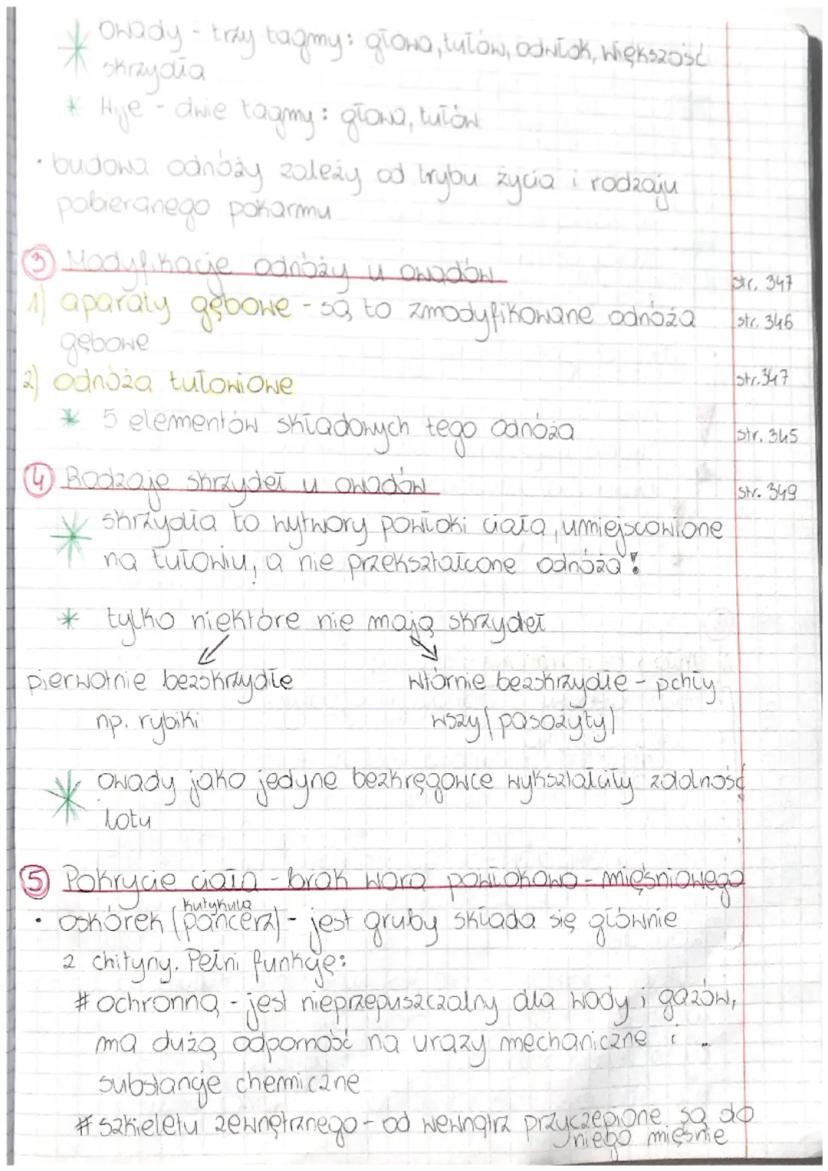 * owady - trzy tagmy: głowa, tułów, odwłok, większość
skrzydła
* Wije - dwie tagmy: głowa, tułów
• budowa odnóży zależy od trybu życia i rodzaju
pobieranego pokarmu
③ Modyfikacje odnóży u owadów str. 347
1) aparaty gębowe - są to zmodyfikowane odnóża str. 346
gębowe
2) odnóża tułowiowe str. 347
* 5 elementów składowych tego odnóża str. 345
④ Rodzaje skrzydeł u owadów str. 349
* skrzydła to wytwory powłoki ciała, umiejscowione
na tułowiu, a nie przekształcone odnóża!
* tylko niektóre nie mają skrzydeł
pierwotnie bezskrzydłe wtórnie bezskrzydłe - pchły
np. rybiki wszy (pasożyty)
* owady jako jedyne bezkręgowce wykształciły zdolność
lotu
⑤ Pokrycie ciała - brak wora powłokowo - mięśniowego
kutykula
• oskórek (pancerz) - jest gruby składa się głównie
z chityny. Pełni funkcję:
# ochronną - jest nieprzepuszczalny dla wody i gazów,
ma dużą odporność na urazy mechaniczne i
substancje chemiczne
# szkieletu zewnętrznego - od wewnątrz przyczepione są do
niego mięśnie